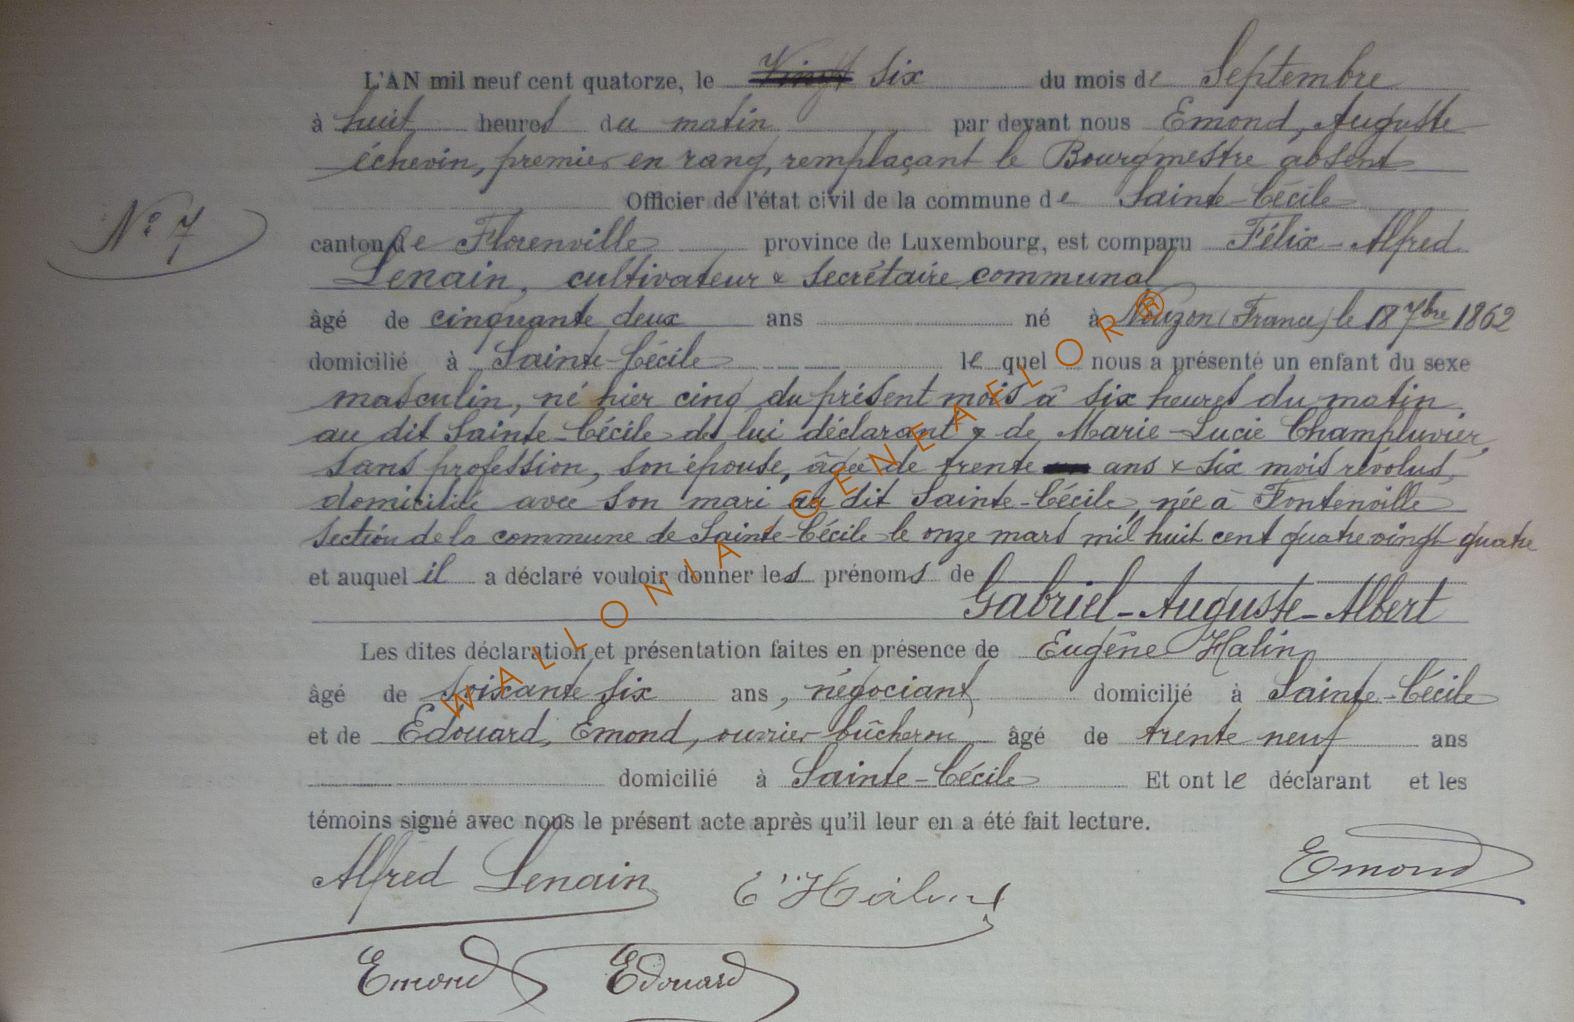 L'AN mil neuf cent quatorze, le Vingt six du mois de Septembre
à huit heures du matin par devant nous Emond, Auguste
échevin, premier en rang, remplaçant le Bourgmestre absent
Officier de l'état civil de la commune de Sainte-Cécile
N° 7
canton de Florenville province de Luxembourg, est comparu Félix-Alfred
Lenain, cultivateur & secrétaire communal
âgé de cinquante deux ans né à Nouzon (France) le 18 7bre 1862
domicilié à Sainte-Cécile lequel nous a présenté un enfant du sexe
masculin, né hier cinq du présent mois à six heures du matin
au dit Sainte-Cécile de lui déclarant & de Marie-Lucie Champluvier,
sans profession, son épouse, âgée de trente ans & six mois révolus,
domiciliée avec son mari au dit Sainte-Cécile, née à Fontenoille
section de la commune de Sainte-Cécile le onze mars mil huit cent quatre vingt quatre
et auquel il a déclaré vouloir donner les prénoms de
Gabriel-Auguste-Albert
Les dites déclaration et présentation faites en présence de Eugène Halin
âgé de soixante six ans, négociant domicilié à Sainte-Cécile
et de Edouard, Emond, ouvrier bûcheron âgé de trente neuf ans
domicilié à Sainte-Cécile Et ont le déclarant et les
témoins signé avec nous le présent acte après qu'il leur en a été fait lecture.
Alfred Lenain Emond
Emond Edouard
WALLONIA-GENEAFLOR®